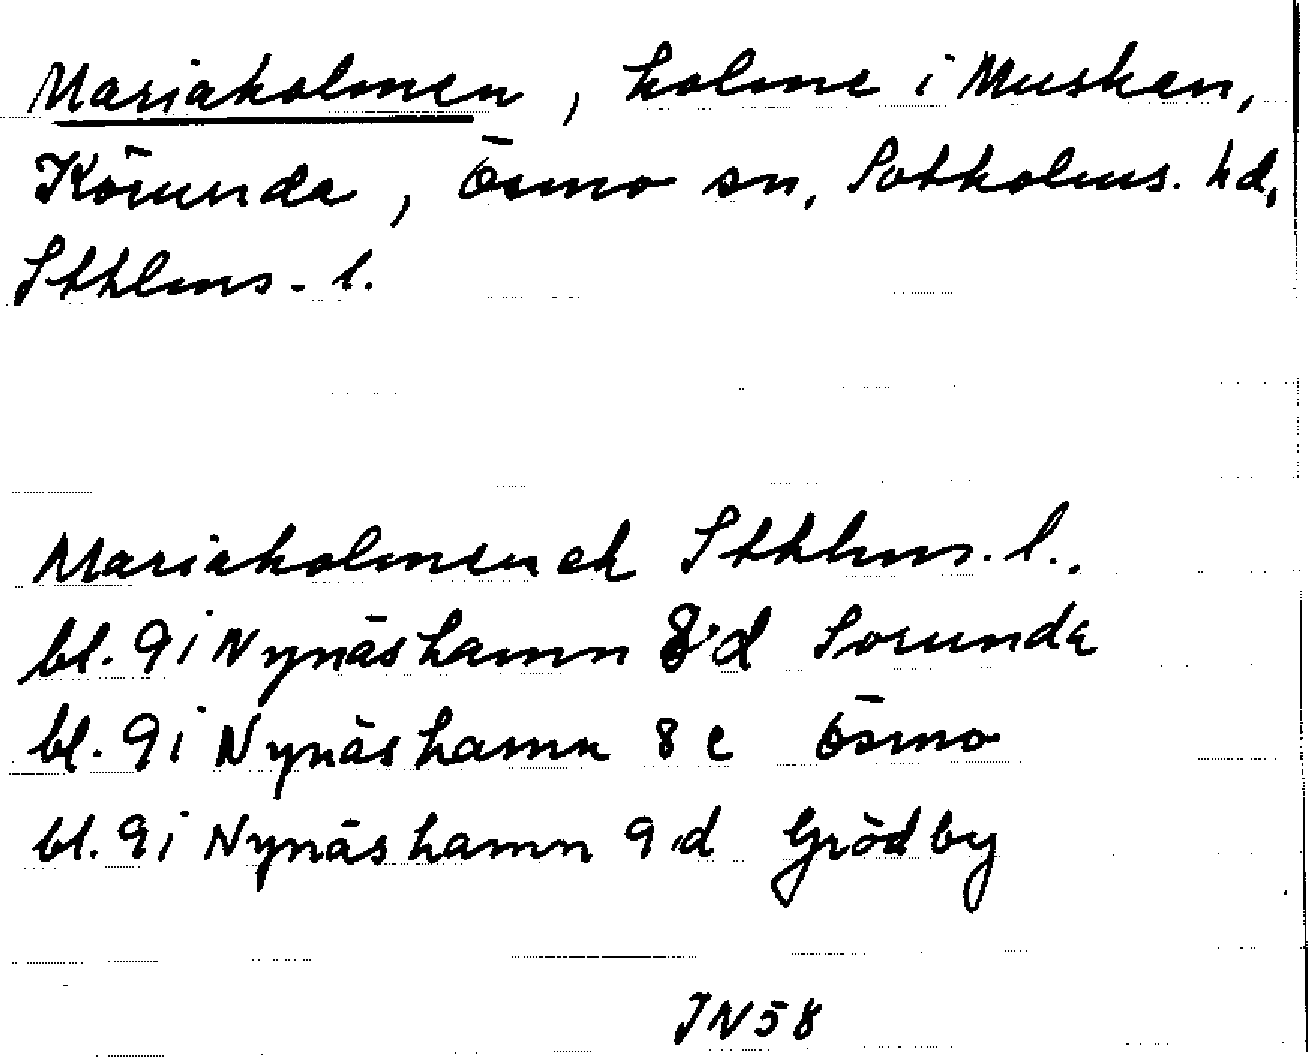 Mariaholmen, holme i Muskan,
Körunda, Ösmo sn, Sotholms. hd,
Sthlms. l.
Mariaholmen ek Sthlms. l.
bl. 9i Nynäshamn 8 d Sorunda
bl. 9i Nynäshamn 8 e Ösmo
bl. 9i Nynäshamn 9 d Grödby
JN 58